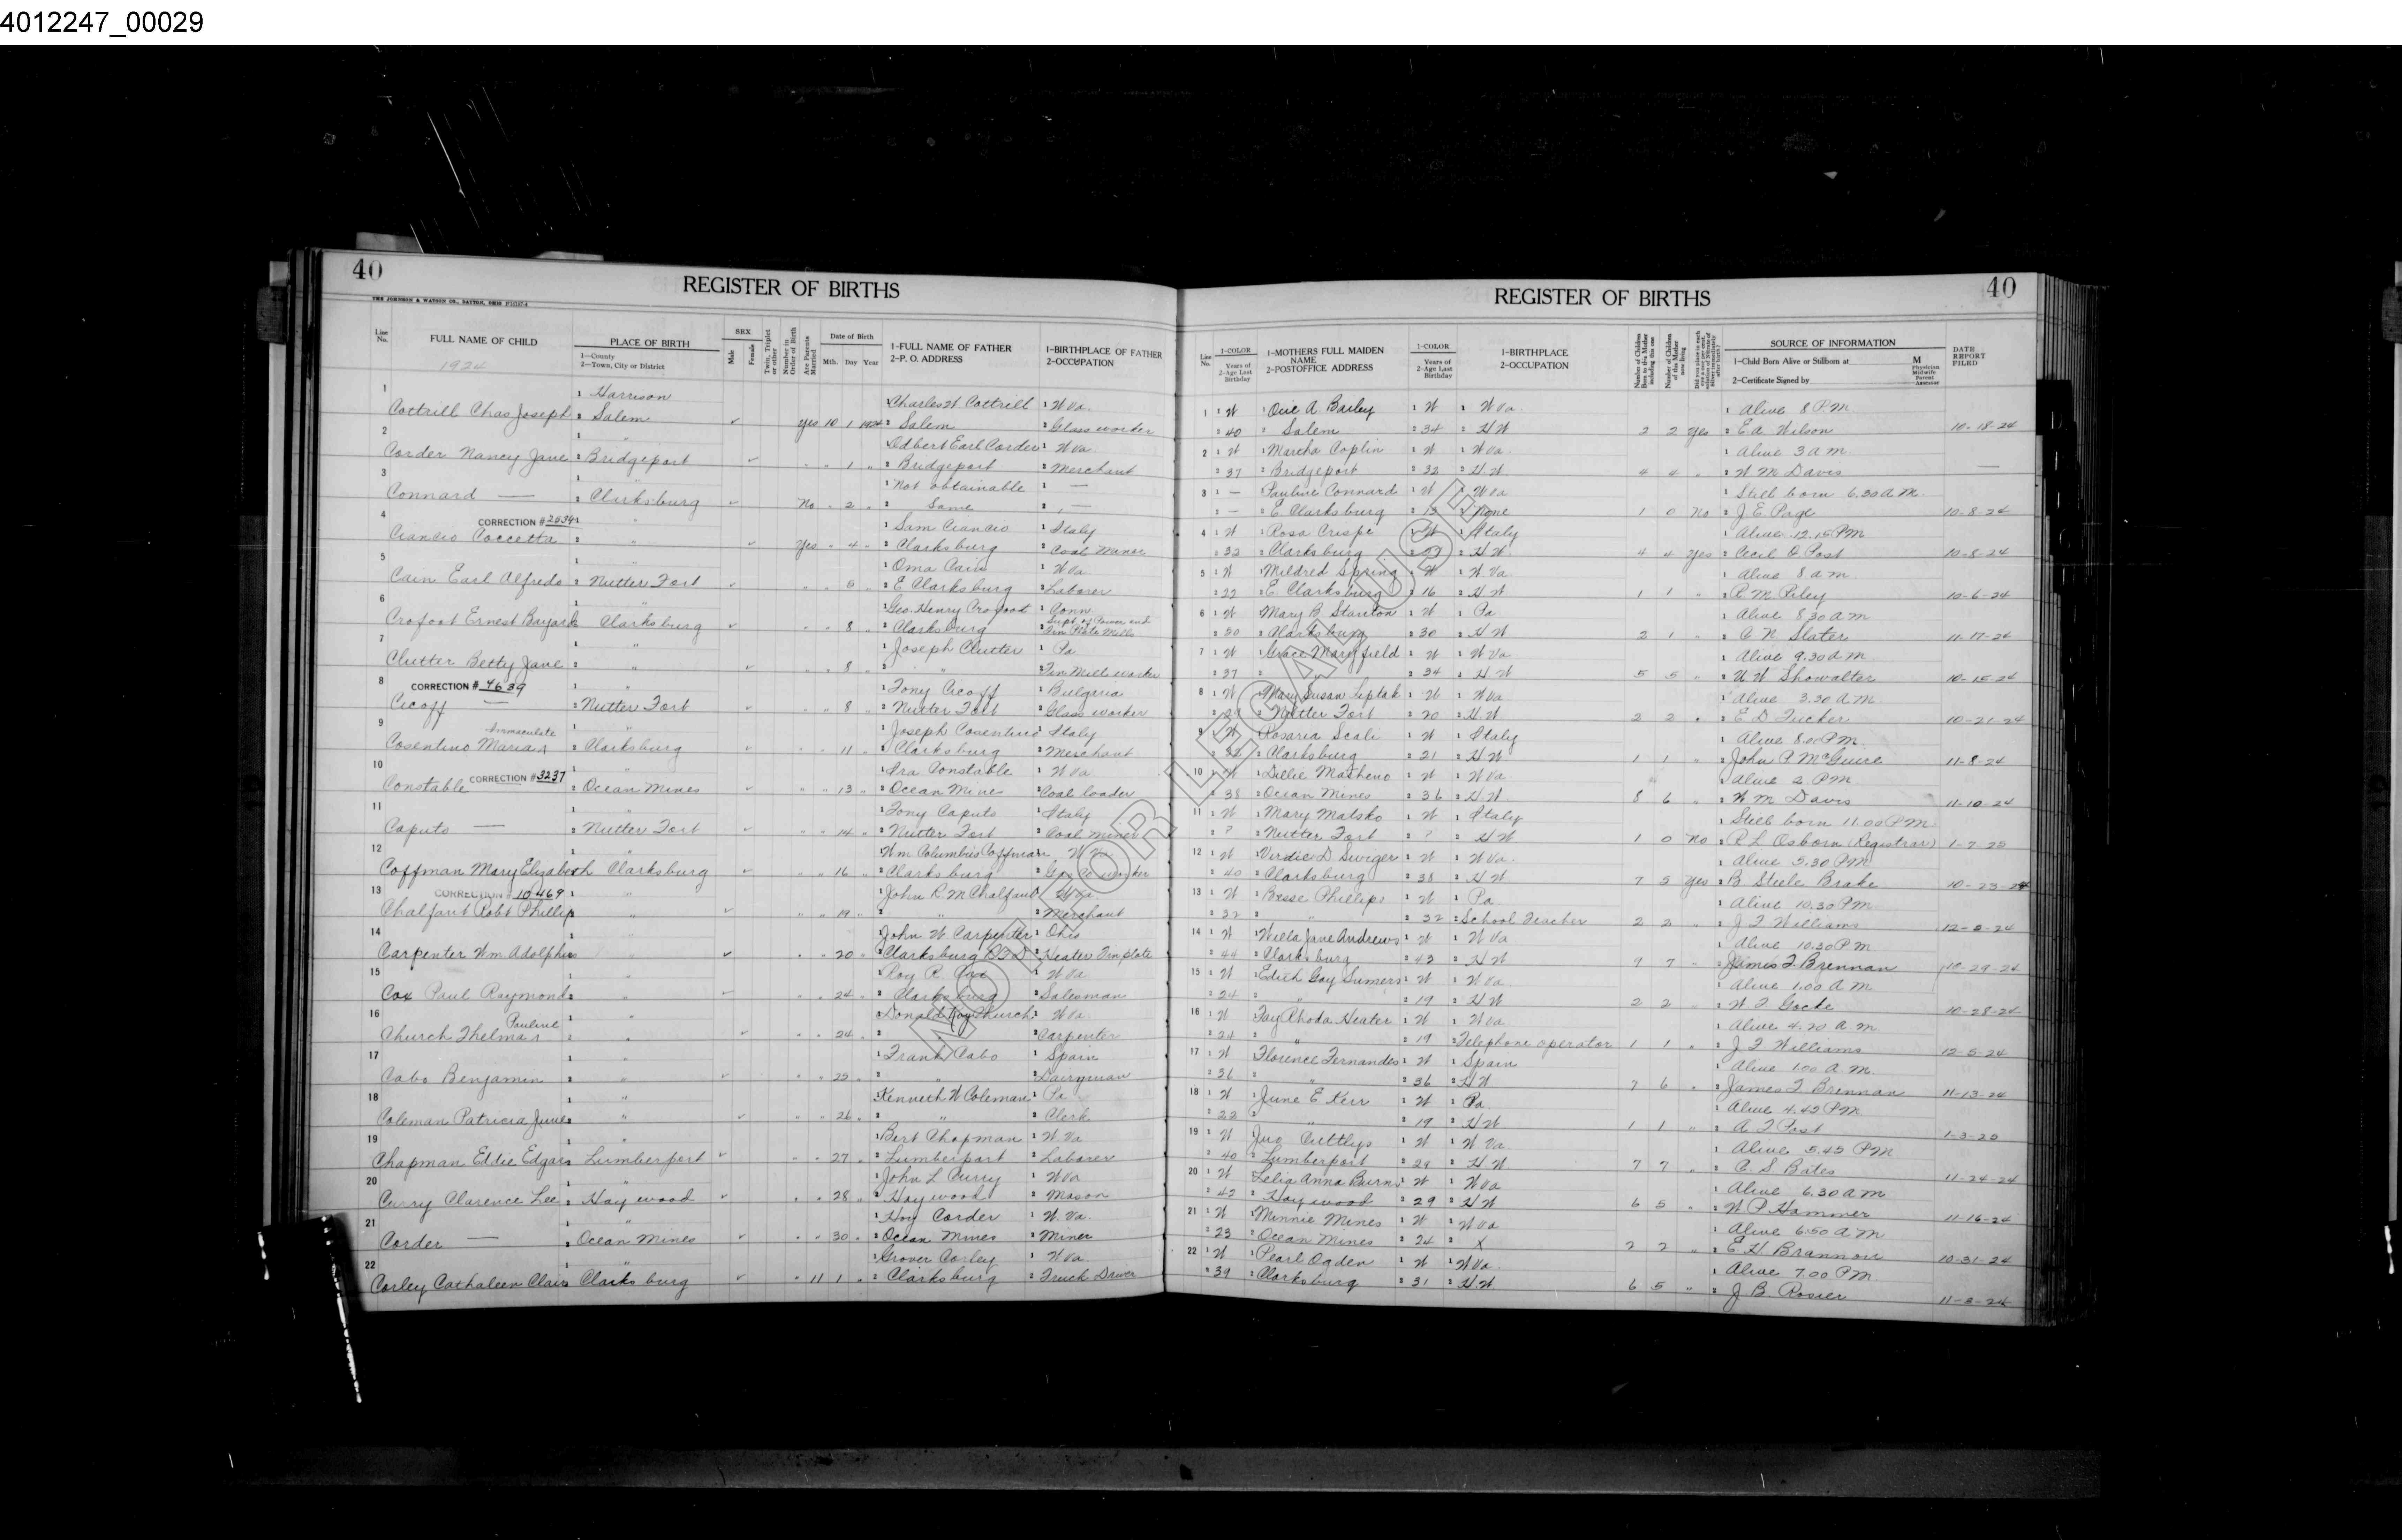 4012247_00029
40
REGISTER OF BIRTHS
THE JOHNSON & WATSON CO., DAYTON, OHIO
Line No. FULL NAME OF CHILD PLACE OF BIRTH SEX Date of Birth 1-FULL NAME OF FATHER 1-BIRTHPLACE OF FATHER
1924 1—County 2—Town, City or District Male Female Twin, Triplet or other Number in Order of Birth Are Parents Married Mth. Day Year 2-P. O. ADDRESS 2-OCCUPATION
1 1 Harrison 1 Charles W Cottrill 1 W Va.
Cottrill Chas Joseph 2 Salem ✓ yes 10 1 1924 2 Salem 2 Glass worker
2 1 " Delbert Earl Corder 1 W Va.
Corder Nancy Jane 2 Bridgeport ✓ " " 1 " 2 Bridgeport 2 Merchant
3 1 " 1 Not obtainable 1 —
Connard — 2 Clarksburg ✓ No " 2 " 2 Same 2 —
4 CORRECTION # 1 " 1 Sam Ciancio 1 Italy
Ciancio Coccetta 2 " ✓ Yes " 4 " 2 Clarksburg 2 Coal Miner
5 1 " 1 Oma Cain 1 W Va.
Cain Earl Alfredo 2 Nutter Fort ✓ " " " 2 E Clarksburg 2 Laborer
6 1 " 1 Geo. Henry Crofoot 1 Conn.
Crofoot Ernest Bayard Clarksburg ✓ " " 8 " 2 Clarksburg 2 Tin Plate Mills
7 1 " 1 Joseph Clutter 1 Pa
Clutter Betty Jane 2 " ✓ " " 8 " 2 " 2 Tin Mill worker
8 CORRECTION # 4639 1 " 1 Tony Cicoff 1 Bulgaria
Cicoff — 2 Nutter Fort ✓ " " 8 " 2 Nutter Fort 2 Glass worker
9 Immaculate 1 " 1 Joseph Cosentino 1 Italy
Cosentino Maria 2 Clarksburg ✓ " " 11 " 2 Clarksburg 2 Merchant
10 CORRECTION # 3237 1 " 1 Ira Constable 1 W Va
Constable 2 Ocean Mines ✓ " " 13 " 2 Ocean Mines 2 Coal loader
11 1 " 1 Tony Caputo 1 Italy
Caputo — 2 Nutter Fort ✓ " " 14 " 2 Nutter Fort 2 Coal miner
12 1 " 1 Wm Columbus Coffman W Va
Coffman Mary Elizabeth Clarksburg ✓ " " 16 " 2 Clarksburg 2 worker
13 CORRECTION # 10469 1 " 1 John R. M Chalfant W Va
Chalfant Robt Phillip " ✓ " " 19 " 2 " 2 Merchant
14 1 " 1 John W Carpenter 1 Ohio
Carpenter Wm Adolphus " ✓ " " 20 " 2 Clarksburg 2 Heater Tinplate
15 1 " 1 Roy R. Cox 1 W Va
Cox Paul Raymond 2 " ✓ " " 24 " 2 Clarksburg 2 Salesman
16 Pauline 1 " Donald Church 1 W Va.
Church Thelma 2 " ✓ " " 24 " 2 2 Carpenter
17 1 " 1 Frank Cabo 1 Spain
Cabo Benjamin 2 " ✓ " " 25 " 2 " 2 Dairyman
18 1 " 1 Kenneth W Coleman 1 Pa
Coleman Patricia June 2 " ✓ " " 26 " 2 " 2 Clerk
19 1 " 1 Bert Chapman 1 W. Va
Chapman Eddie Edgar Lumberport ✓ " " 27 " 2 Lumberport 2 Laborer
20 1 " 1 John L Curry 1 W Va
Curry Clarence Lee 2 Haywood ✓ " " 28 " 2 Haywood 2 Mason
21 1 " 1 Hoy Corder 1 W. Va.
Corder — 2 Ocean Mines ✓ " " 30 " 2 Ocean Mines 2 Miner
22 1 " 1 Grover Corley 1 W Va.
Corley Cathaleen Clair Clarksburg ✓ " 11 1 " 2 Clarksburg 2 Truck Driver
REGISTER OF BIRTHS
40
Line No. 1-COLOR 1-MOTHERS FULL MAIDEN NAME 1-COLOR 1-BIRTHPLACE SOURCE OF INFORMATION DATE REPORT FILED
Years of 2-Age Last Birthday 2-POSTOFFICE ADDRESS Years of 2-Age Last Birthday 2-OCCUPATION Number of Children Born to this Mother including this one Number of Children of this Mother now living 1—Child Born Alive or Stillborn at M
2—Certificate Signed by Physician Midwife Parent Assessor
1 1 W 1 Ocie A. Bailey 1 W 1 W Va. 1 Alive 8 P.M.
2 40 2 Salem 2 34 2 H W 2 2 yes 2 E. A. Wilson 10-18-24
2 1 W 1 Martha Coplin 1 W 1 W Va. 1 Alive 3 a m.
2 37 2 Bridgeport 2 32 2 H W 4 4 " 2 W M Davis —
3 1 — Pauline Connard 1 W 1 W Va 1 Still born 6.30 A M.
2 — 2 E Clarksburg 2 None 1 0 No 2 J E Page 10-8-24
4 1 W 1 Rosa Crispe 1 W 1 Italy 1 Alive 12.15 P.M
2 32 2 Clarksburg 2 27 2 H W 4 4 yes 2 Cecil O Post 10-8-24
5 1 W 1 Mildred Spring 1 W 1 W Va. 1 Alive 8 a m.
2 22 2 E Clarksburg 2 16 2 H W 1 1 " 2 R. M. Riley 10-6-24
6 1 W 1 Mary B Stanton 1 W 1 Pa. 1 Alive 8.30 a m
2 30 2 Clarksburg 2 30 2 H W 2 1 " 2 C. N. Slater 11-17-24
7 1 W 1 Grace Maryfield 1 W 1 W Va 1 Alive 9.30 a m
2 37 2 " 2 34 2 H W 5 5 " 2 U W Showalter 10-15-24
8 1 W 1 Mary Susan Liptak 1 W 1 W Va 1 Alive 3.30 A.M.
2 Nutter Fort 2 20 2 H W 2 2 " 2 E. D Tucker 10-21-24
9 1 W 1 Rosaria Scali 1 W 1 Italy 1 Alive P.M.
2 2 Clarksburg 2 21 2 H W 1 1 " 2 John P McGuire 11-8-24
10 1 W 1 Dillie Matheno 1 W 1 W Va 1 Alive 2. P.M.
2 38 2 Ocean Mines 2 36 2 H W 8 6 " 2 W M Davis 11-10-24
11 1 W 1 Mary Matsko 1 W 1 Italy 1 Still born 11.00 P.M
2 ? 2 Nutter Fort 2 ? 2 H W 1 0 No 2 R L Osborn (Registrar) 1-7-25
12 1 W 1 Virdie D Swiger 1 W 1 W Va. 1 Alive 5.30 P.M
2 40 2 Clarksburg 2 38 2 H W 7 5 yes 2 B Steele Brake 10-23-24
13 1 W 1 Besse Phillips 1 W 1 Pa 1 Alive 10.30 P.M.
2 32 2 " 2 32 2 School Teacher 2 2 " 2 J T Williams 12-2-24
14 1 W Willa Jane Andrews 1 W 1 W Va 1 Alive 10.30 P.M
2 44 2 Clarksburg 2 43 2 H W 9 7 " 2 James T. Brennan 10-29-24
15 1 W Edith Gay Sumers 1 W 1 W Va. 1 Alive 1.00 A M
2 24 2 " 2 19 2 H W 2 2 " 2 W T Gocke 10-28-24
16 1 W Fay Rhoda Heater 1 W 1 W Va 1 Alive 4.20 a.m
2 24 " 2 19 2 Telephone operator 1 1 " 2 J. T Williams 12-5-24
17 1 W Florence Fernandes 1 W 1 Spain 1 Alive 1.00 A. M.
2 36 2 " 2 36 2 H W 7 6 " 2 James T Brennan 11-13-24
18 1 W June E Kerr 1 W 1 Pa 1 Alive 4.45 P M
2 22 2 " 2 19 2 H W 1 1 " 2 A T Post 1-3-25
19 1 W 1 W 1 W Va 1 Alive 5.45 P M
2 40 2 Lumberport 2 29 2 H W 7 7 " 2 C. S Bates 11-24-24
20 1 W Lelia Anna Burns 1 W 1 W Va 1 Alive 6.30 a m
2 42 2 Haywood 2 29 2 H W 6 5 " 2 W P. Hammer 11-16-24
21 1 W 1 Minnie Mines 1 W 1 W Va 1 Alive 6.50 A M
2 23 2 Ocean Mines 2 24 2 X 2 2 " 2 E. H Brannon 10-31-24
22 1 W 1 Pearl Ogden 1 W 1 W Va. 1 Alive 7.00 P M
2 39 2 Clarksburg 2 31 2 H W 6 5 " 2 J B. Rosier 11-3-24
NOT FOR LEGAL USE